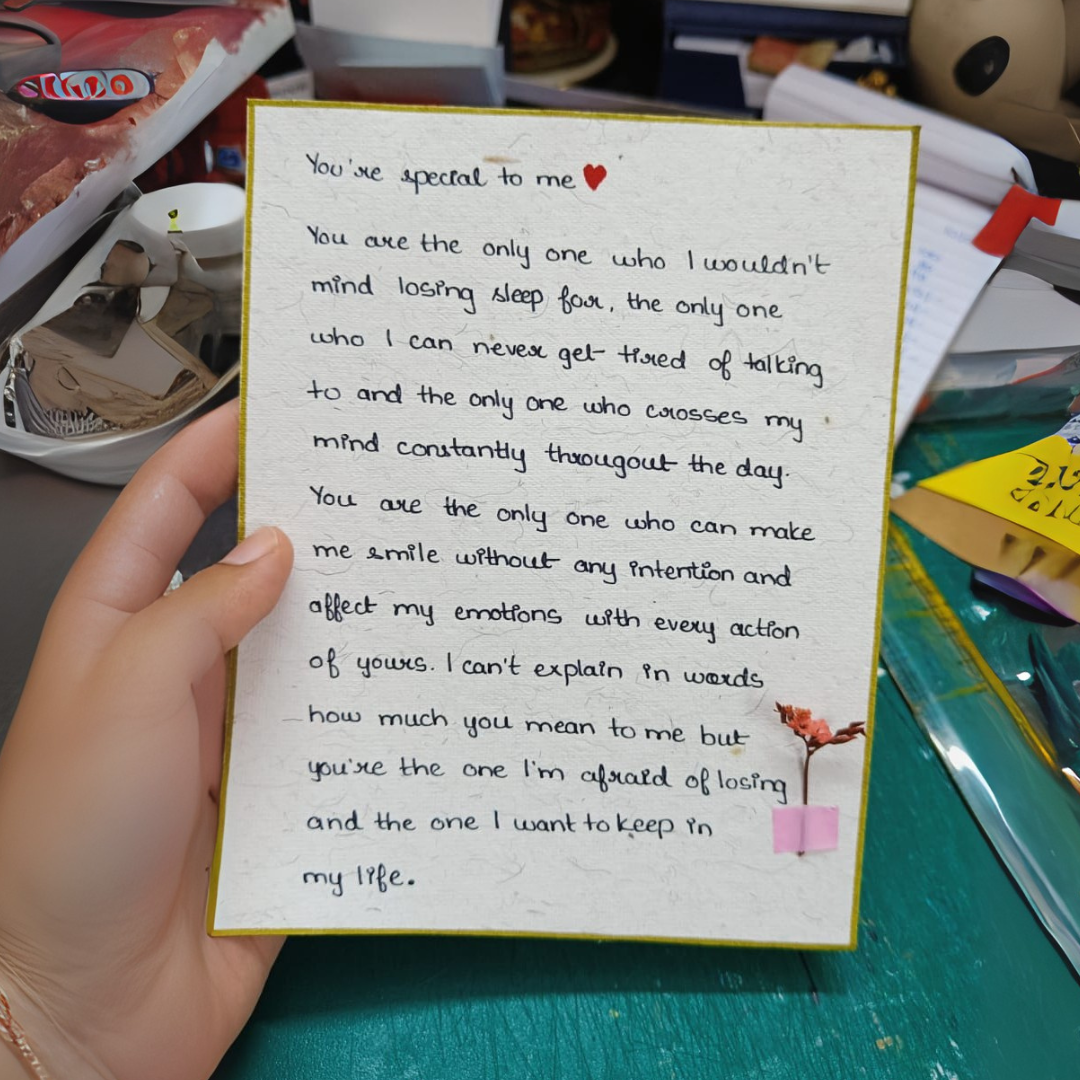 You're special to me ♥
You are the only one who I wouldn't
mind losing sleep for, the only one
who I can never get tired of talking
to and the only one who crosses my
mind constantly througout the day.
You are the only one who can make
me smile without any intention and
affect my emotions with every action
of yours. I can't explain in words
how much you mean to me but
you're the one I'm afraid of losing
and the one I want to keep in
my life.